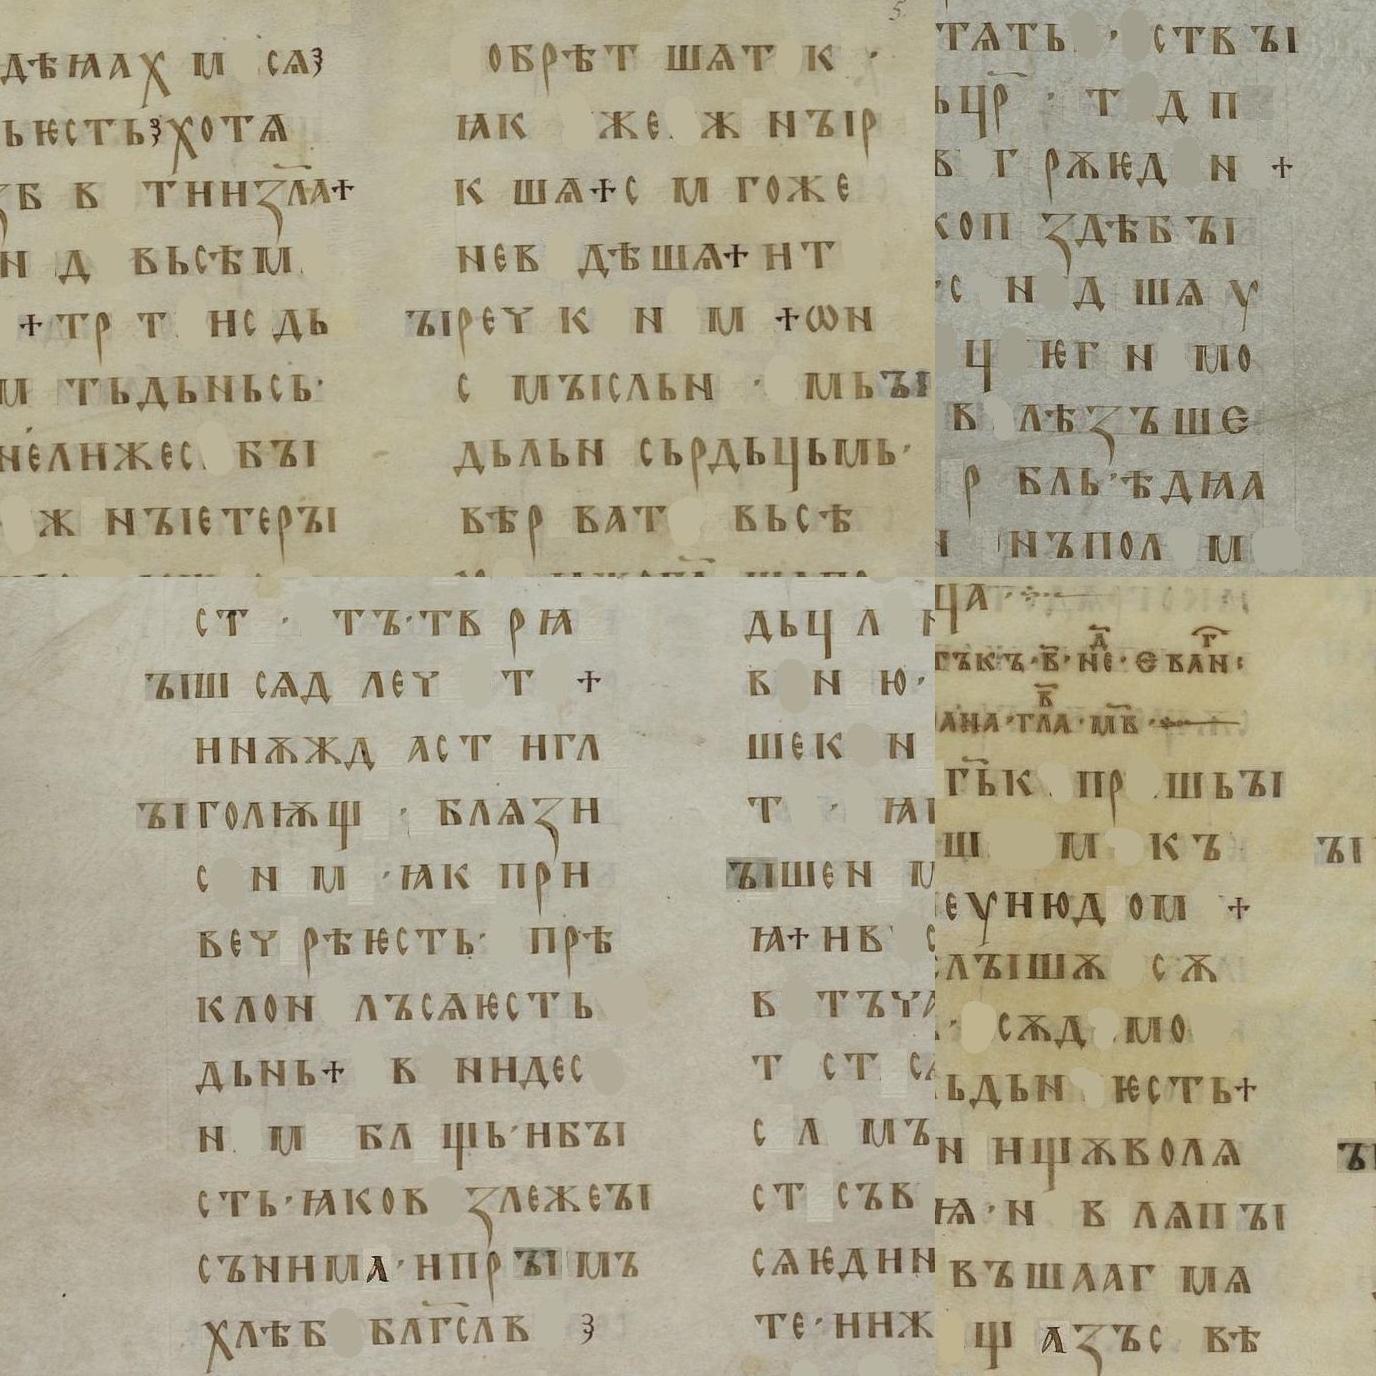 дѣꙗах м сѧꙁ
ьѥстьꙁхотѧ
б в тннꙁла+
н д вьсѣм
+тр т нс дь
м тьдьньсь·
нелнжес бꙑ
ж нꙑетерꙑ
обрѣт шѧт к ·
ꙗк же ж нꙑр
к шѧ+с м гоже
нев дѣшѧ+нт
ꙑреү к н м +ѡн
с мꙑсльн · мьꙑ
дьльн сьрдьцьмь·
вѣр ват вьсѣ
тѧть · ствꙑ
ьцр · т д п
в г рѫѥд н +
коп ꙁдѣбꙑ
с н д шѧ у
ц ѥг н мо
в лѣꙁъше
р бль·ѣдꙗа
нъпол м
ст · тъ·тв рꙗ
ꙑш сѧд леү т +
ннѫжд аст нгл
ꙑголѭщ · блѧꙁн
с н м ·ꙗк прн
веү рѣѥсть· прѣ
клон лъсѧѥсть
дьнь+ в нндес
н м бл щь·нбꙑ
сть·ꙗков ꙁлежеꙑ
съннмѧ·нпрꙑмъ
хлѣб блгслв ꙁ
дьц л
в н ю·
шек н
т · ꙗ
ꙑшен м
ꙗ+нв с
в тъүа
т ст сѧ
с л мъ
ст съв
сѧѥднн
те·ннж
ца
гъкъ·в·не·еван:
ана·гла·мв
гьк пр шьꙑ
ш м къ ꙑ
еунюд ом +
лꙑшѫ сѫ
· сѫд мо
ьдьн ѥсть+
н нщѫволѧ
ꙗ·н в лѧпꙑ
въшлаг мѧ
щ ѧꙁъс вѣ